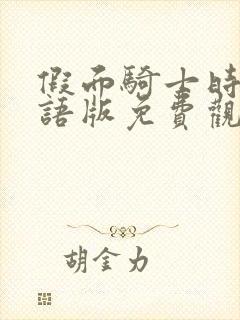 假面騎士時
語版免費觀
胡金力